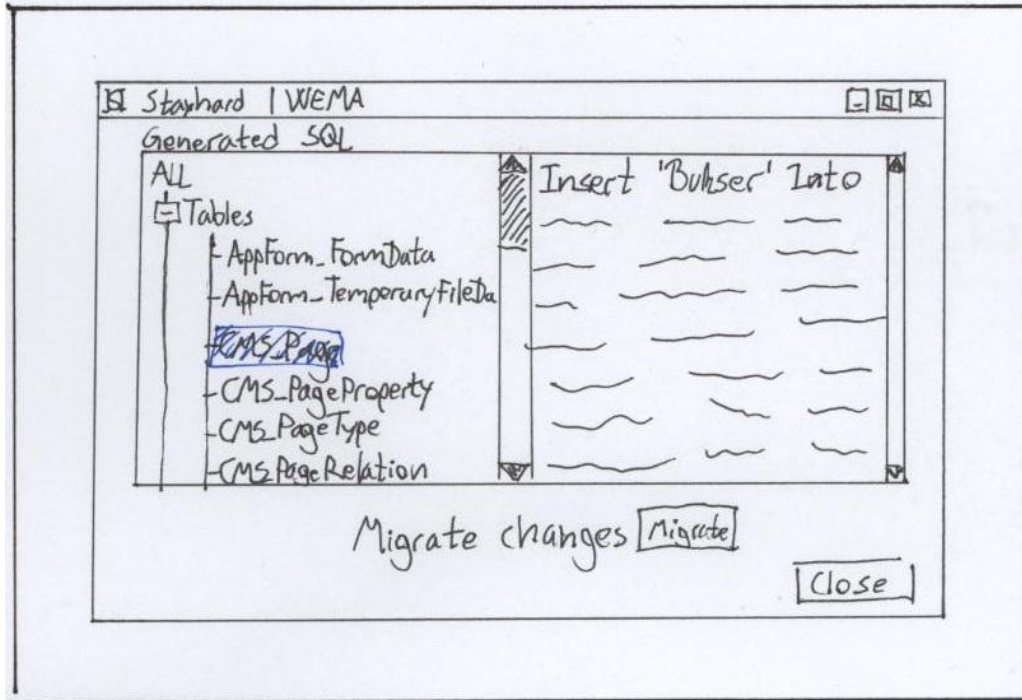 Stayhard | WEMA
Generated SQL
ALL
Tables
AppForm_FormData
AppForm_TemporaryFileDa
CMS_Page
CMS_PageProperty
CMS_PageType
CMS_PageRelation
Insert 'Bukser' Into
Migrate changes Migrate
Close